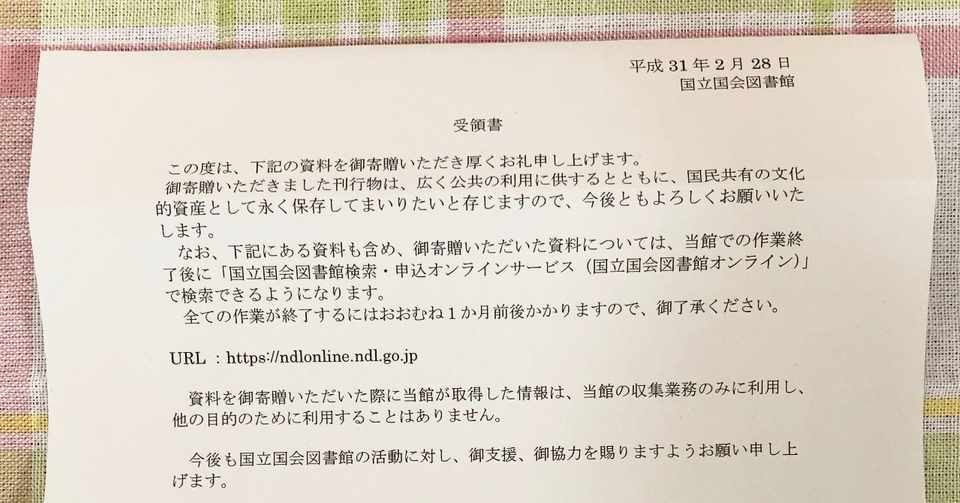 平成 31 年 2 月 28 日
国立国会図書館
受領書
この度は、下記の資料を御寄贈いただき厚くお礼申し上げます。
御寄贈いただきました刊行物は、広く公共の利用に供するとともに、国民共有の文化
的資産として永く保存してまいりたいと存じますので、今後ともよろしくお願いいた
します。
なお、下記にある資料も含め、御寄贈いただいた資料については、当館での作業終
了後に「国立国会図書館検索・申込オンラインサービス（国立国会図書館オンライン）」
で検索できるようになります。
全ての作業が終了するにはおおむね１か月前後かかりますので、御了承ください。
URL ：https://ndlonline.ndl.go.jp
資料を御寄贈いただいた際に当館が取得した情報は、当館の収集業務のみに利用し、
他の目的のために利用することはありません。
今後も国立国会図書館の活動に対し、御支援、御協力を賜りますようお願い申し上
げます。